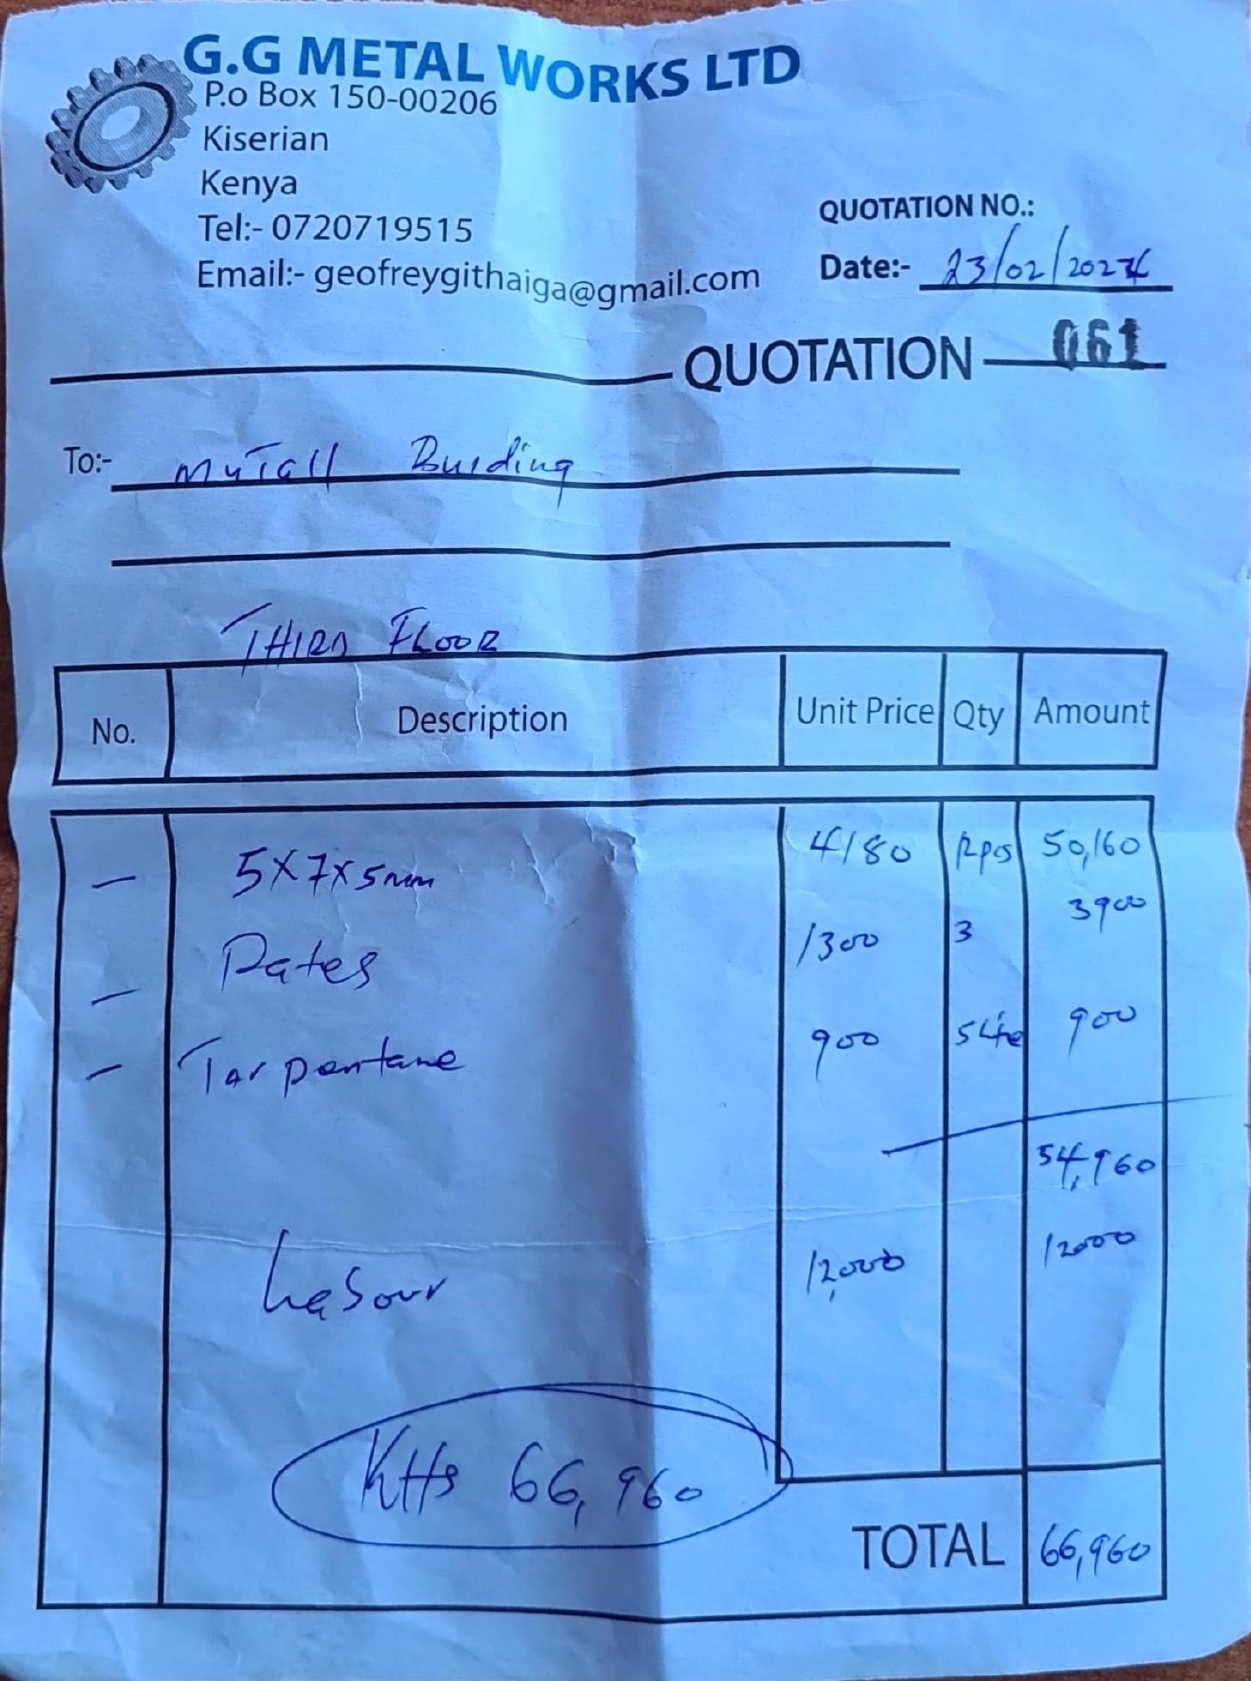 G.G METAL WORKS LTD
P.o Box 150-00206
Kiserian
Kenya
Tel:- 0720719515
Email:- geofreygithaiga@gmail.com
QUOTATION NO.:
Date:- 23/02/202
QUOTATION 061
To:- MUTall Buiding
THIRD FLOOR
No. Description Unit Price Qty Amount
- 5x7x5mm 4180 12pcs 50,160
- Pates 1300 3 3900
- Tarpentane 900 5Lte 900
54,960
Labour 12,000 12000
KHs 66,960
TOTAL 66,960